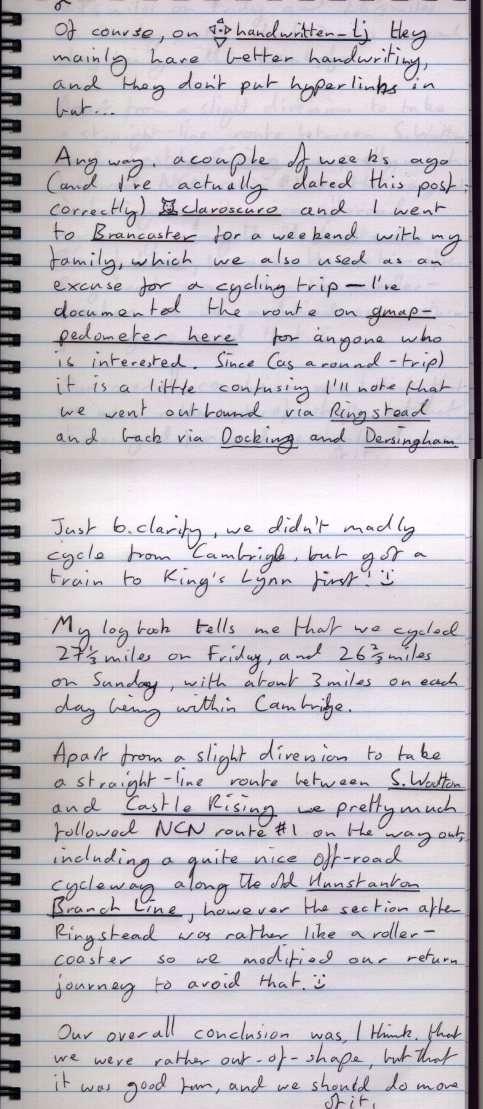 Of course, on handwritten-lj they
mainly have better handwriting,
and they don't put hyperlinks in
but...
Anyway, a couple of weeks ago
(and I've actually dated this post
correctly) claroscuro and I went
to Brancaster for a weekend with my
family, which we also used as an
excuse for a cycling trip – I've
documented the route on gmap-
pedometer here for anyone who
is interested. Since (as a round-trip)
it is a little confusing I'll note that
we went outbound via Ringstead
and back via Docking and Dersingham
Just to clarify, we didn't madly
cycle from Cambrigde, but got a
train to King's Lynn first! :)
My logbook tells me that we cycled
27⅓ miles on Friday, and 26⅔ miles
on Sunday, with about 3 miles on each
day being within Cambridge.
Apart from a slight diversion to take
a straight-line route between S. Wootton
and Castle Rising we pretty much
followed NCN route #1 on the way out,
including a quite nice off-road
cycleway along the old Hunstanton
Branch Line, however the section after
Ringstead was rather like a roller-
coaster so we modified our return
journey to avoid that. :)
Our overall conclusion was, I think, that
we were rather out-of-shape, but that
it was good fun, and we should do more
of it.